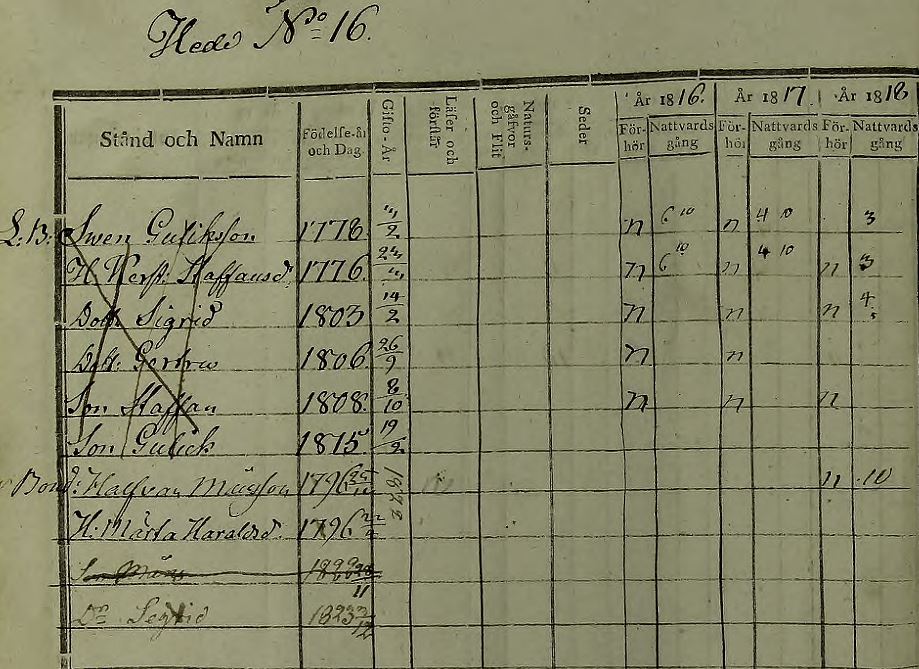 Hede No 16.
Stånd och Namn Födelse-år och Dag Gifto-År Läser och förstår Naturs-gåfvor och Flit Seder År 1816. År 1817 År 1818
För-hör Nattvards gång För-hör Nattvards gång För-hör Nattvards gång
Swen Guliksson 1778 n 6 10 n 4 10 3
H. Kerst: Staffansd. 1776 n 6 10 n 4 10 n 3
Dott Sigrid 1803 14/2 n n n 4
Dott: Gertru 1806 26/9 n n
Son Staffan 1808 8/10 n n n
Son Gulick 1815 19/2
Bond: Halfvan Månsson 1796 25 1822 n 10
H: Märta Haraldsd. 1796 22
Son Måns 1822 28/11
Dr Segrid 1823 3/12